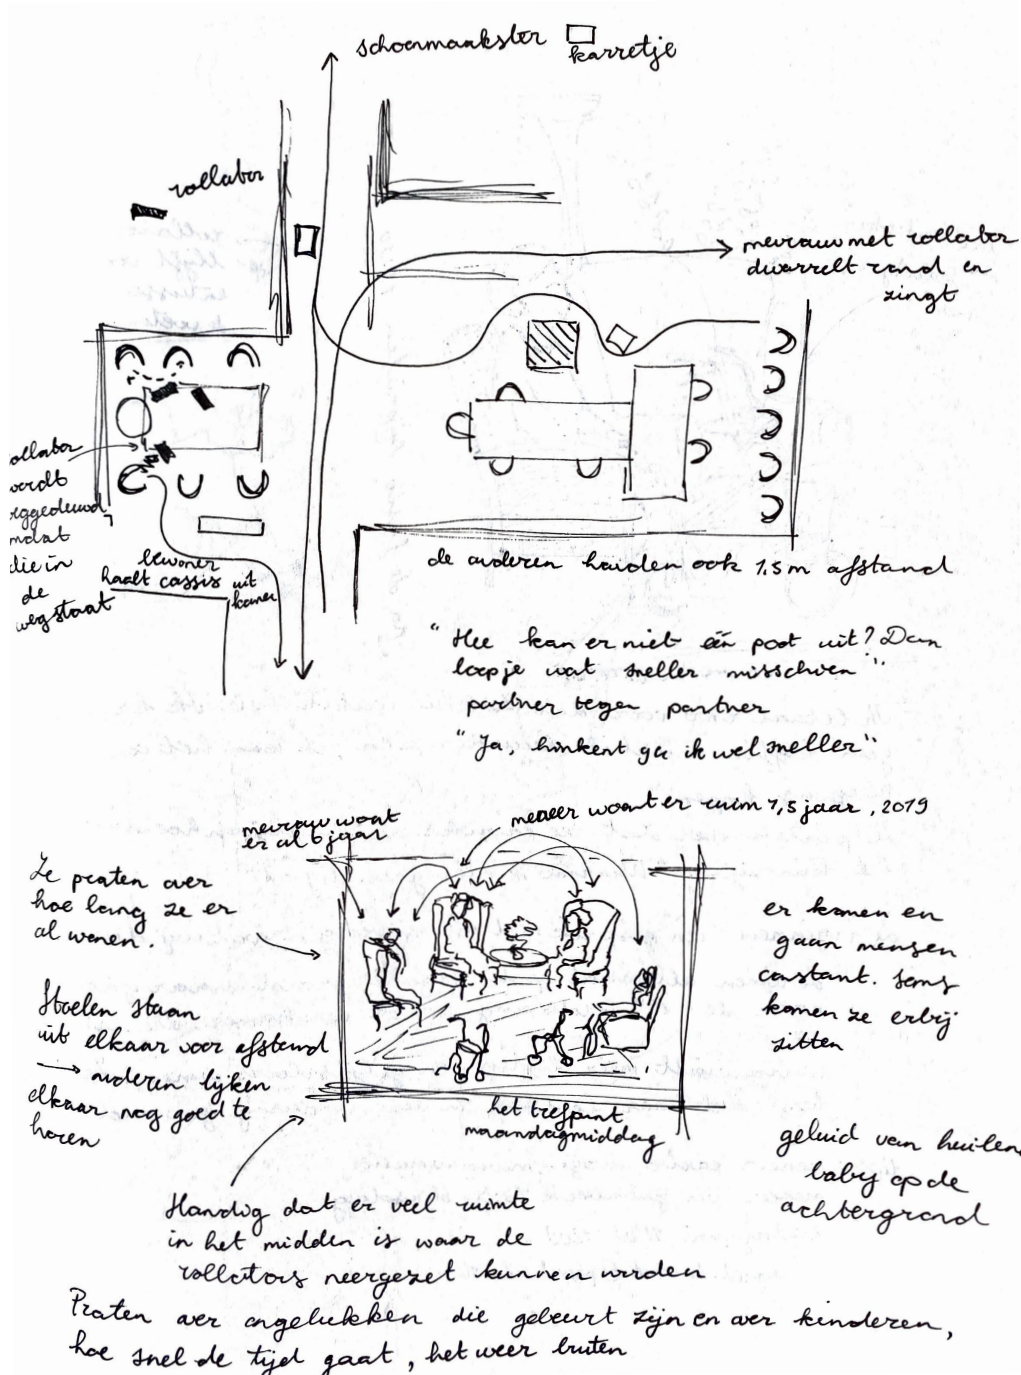 schoonmaakster
karretje
rollator
mevrouw met rollator
dwarrelt rond en
zingt
ollator
wordt
eggeduwd,
mdat
die in
de
weg staat
bewoner
haalt cassis uit
kamer
de anderen houden ook 1,5 m afstand
"Hee kan er niet één poot uit? Dan
loop je wat sneller misschien"
partner tegen partner
"Ja, hinkent ga ik wel sneller"
mevrouw woont
er al 6 jaar
meneer woont er ruim 1,5 jaar, 2019
Ze praten over
hoe lang ze er
al wonen.
Stoelen staan
uit elkaar voor afstand
→ ouderen lijken
elkaar nog goed te
horen
er komen en
gaan mensen
constant. soms
komen ze erbij
zitten
het trefpunt
maandagmiddag
geluid van huilen
baby op de
achtergrond
Handig dat er veel ruimte
in het midden is waar de
rollators neergezet kunnen worden
Praten over ongelukken die gebeurt zijn en over kinderen,
hoe snel de tijd gaat, het weer buiten